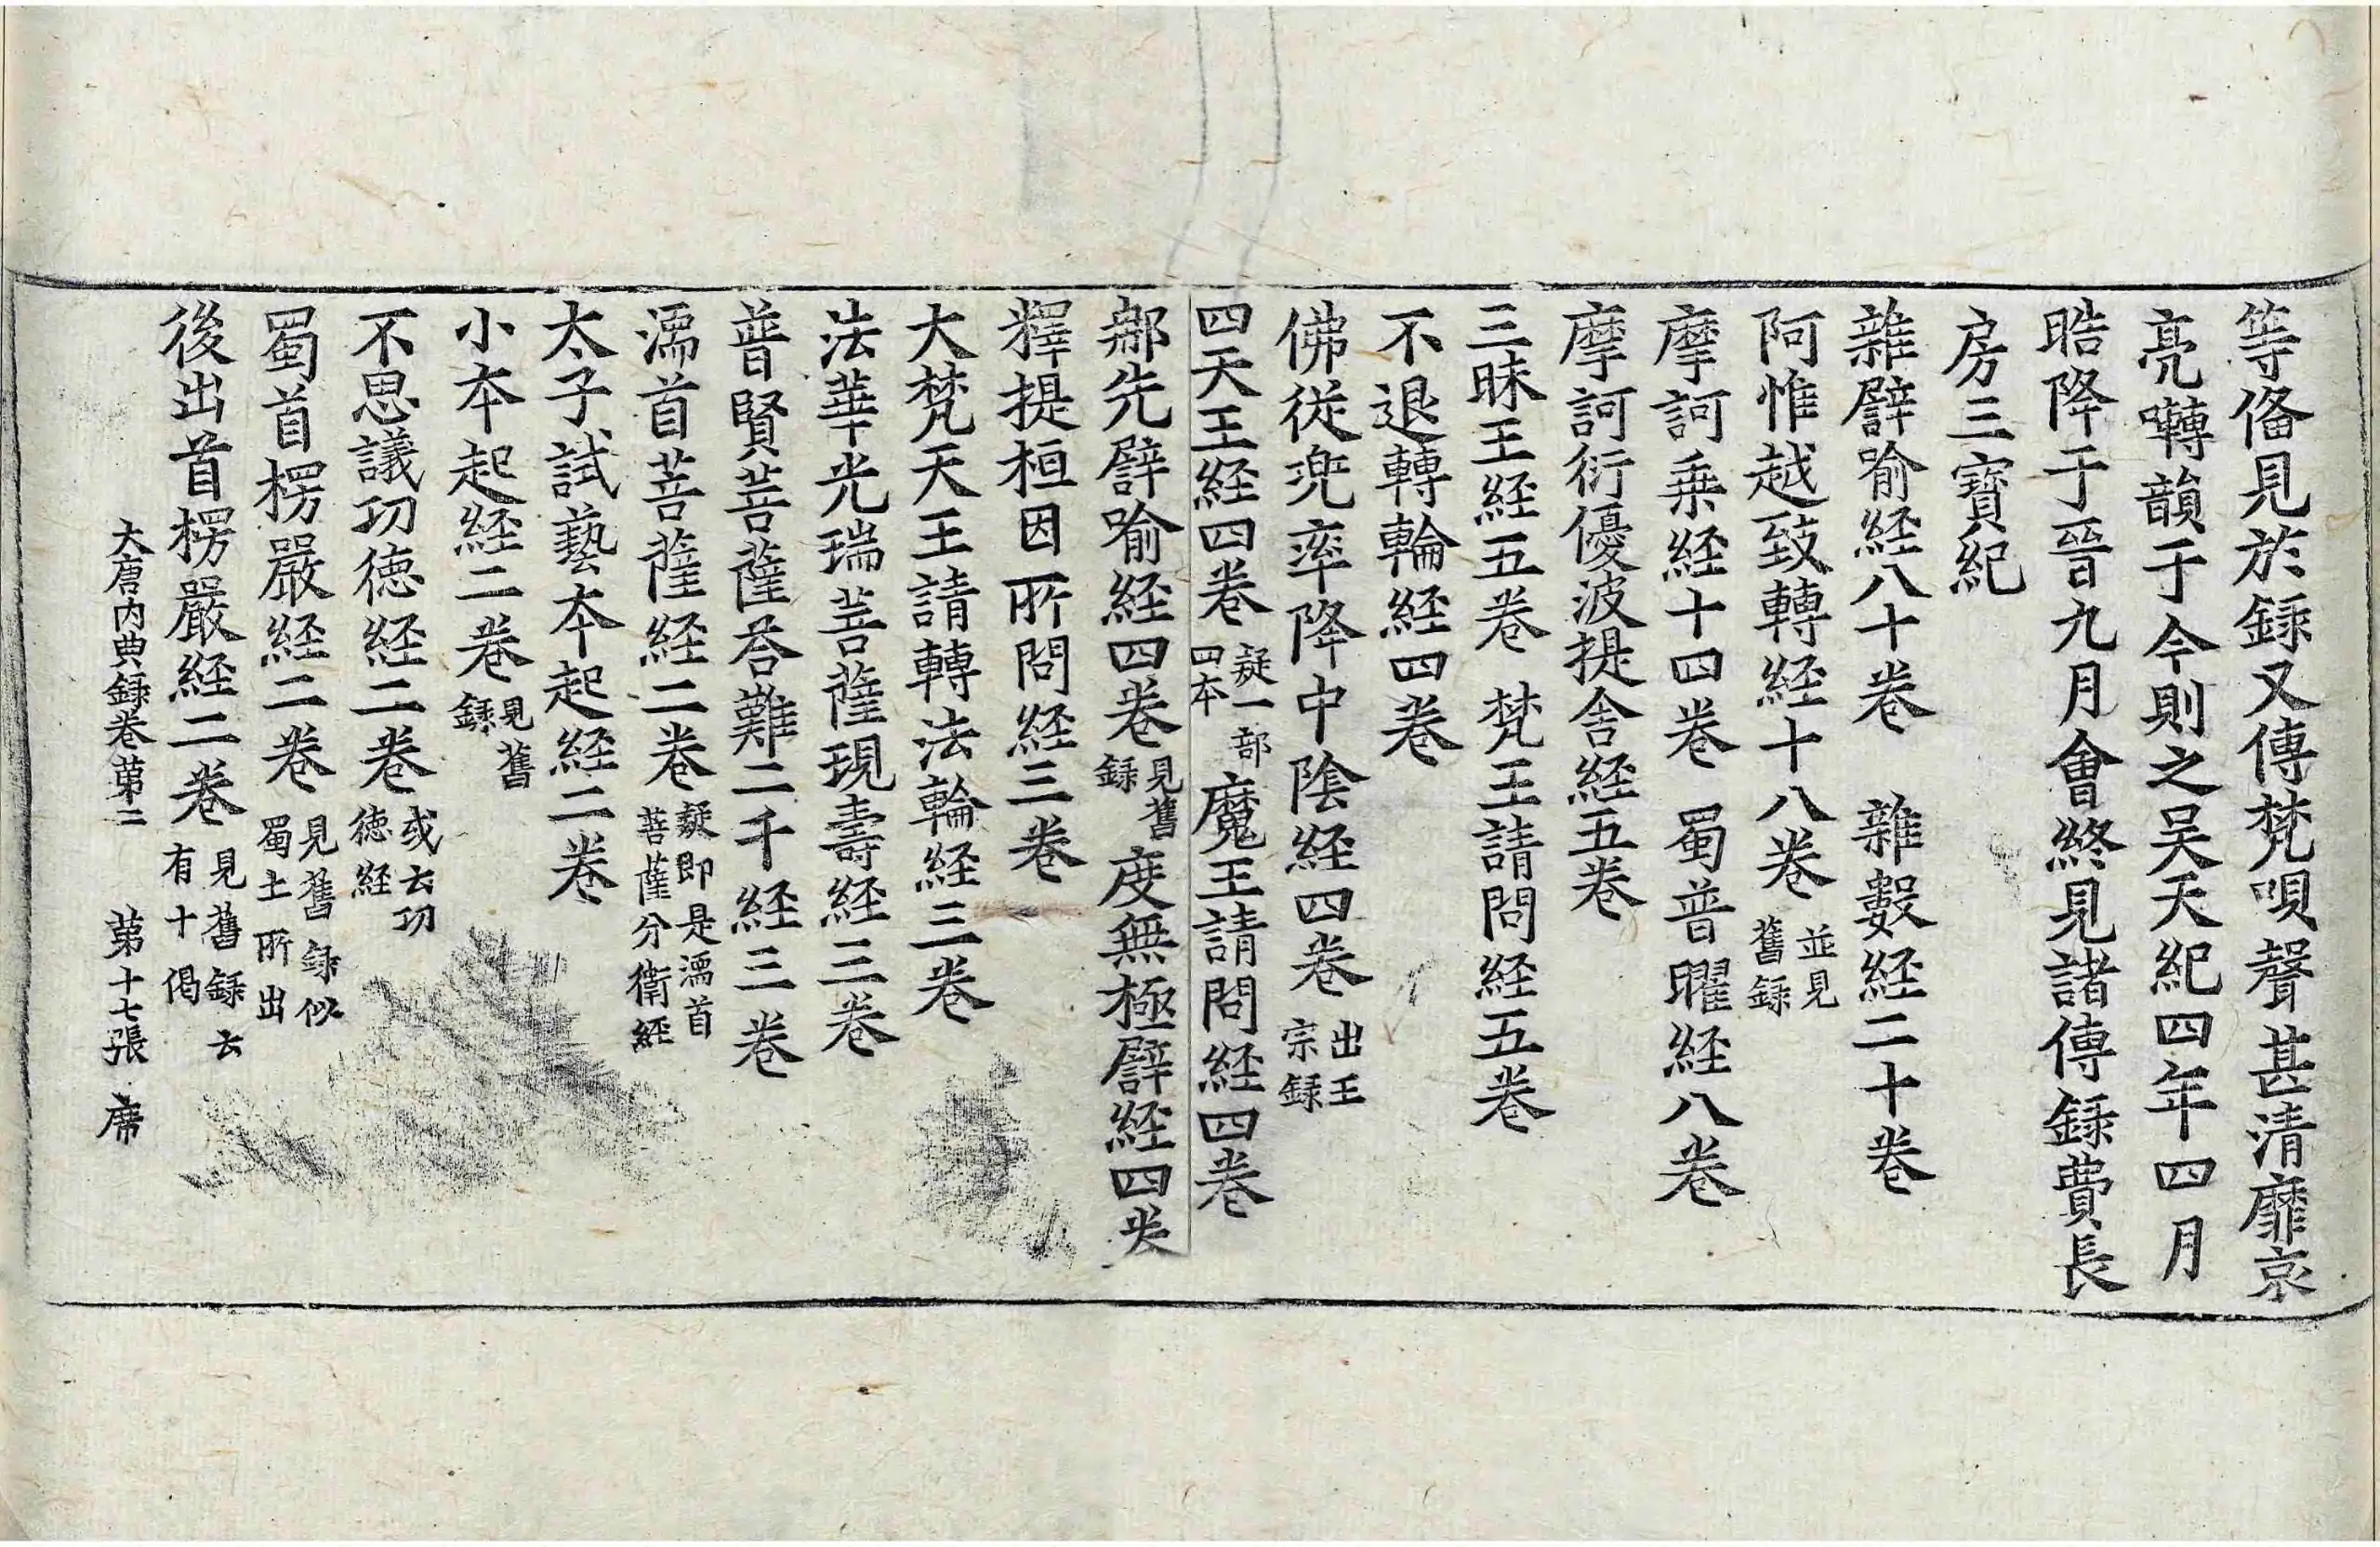 等俻見於録又傳梵唄聲甚清靡哀
亮囀韻于今則之吴天紀四年四月
晧降于晉九月會終見諸傳録費長
房三寶紀
雜譬喻経八十卷　雜數経二十卷
阿惟越致轉経十八卷 並見舊録
摩訶乗経十四卷　蜀普曜経八卷
摩訶衍優波提舎経五卷
三昧王経五卷　梵王請問経五卷
不退轉輪経四卷
佛從兜率降中陰経四卷 出王宗録
四天王経四卷 疑一部四本 魔王請問経四卷
那先譬喻経四卷 見舊録 度無極譬経四卷
釋提桓因所問経三卷
大梵天王請轉法輪経三卷
法華光瑞菩薩現壽経三卷
普賢菩薩荅難二千経三卷
濡首菩薩経二卷 疑即是濡首菩薩分衛経
太子試藝本起経二卷
小本起経二卷 見舊録
不思議功徳経二卷 或云功徳経
蜀首楞嚴経二卷 見舊録似蜀土所出
後出首楞嚴経二卷 見舊録云有十偈
大唐内典録卷第二　第十七張　席